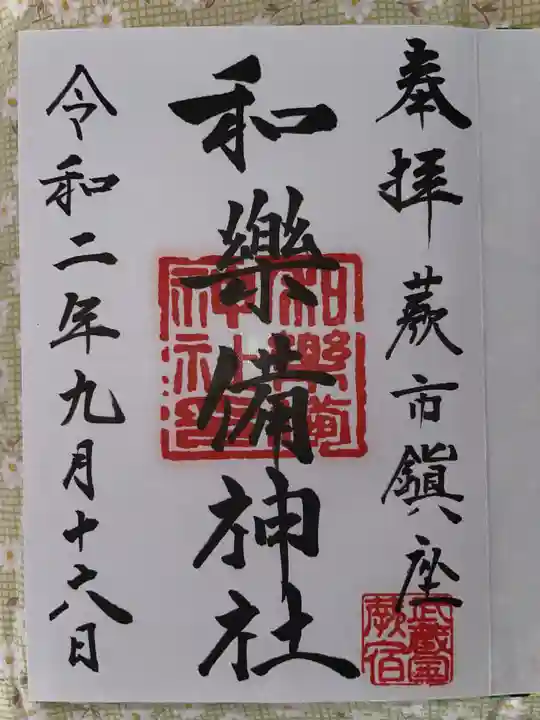 奉拝
蕨市鎮座
和樂備神社
和樂備神社印
武蔵国蕨宿
令和二年九月十六日